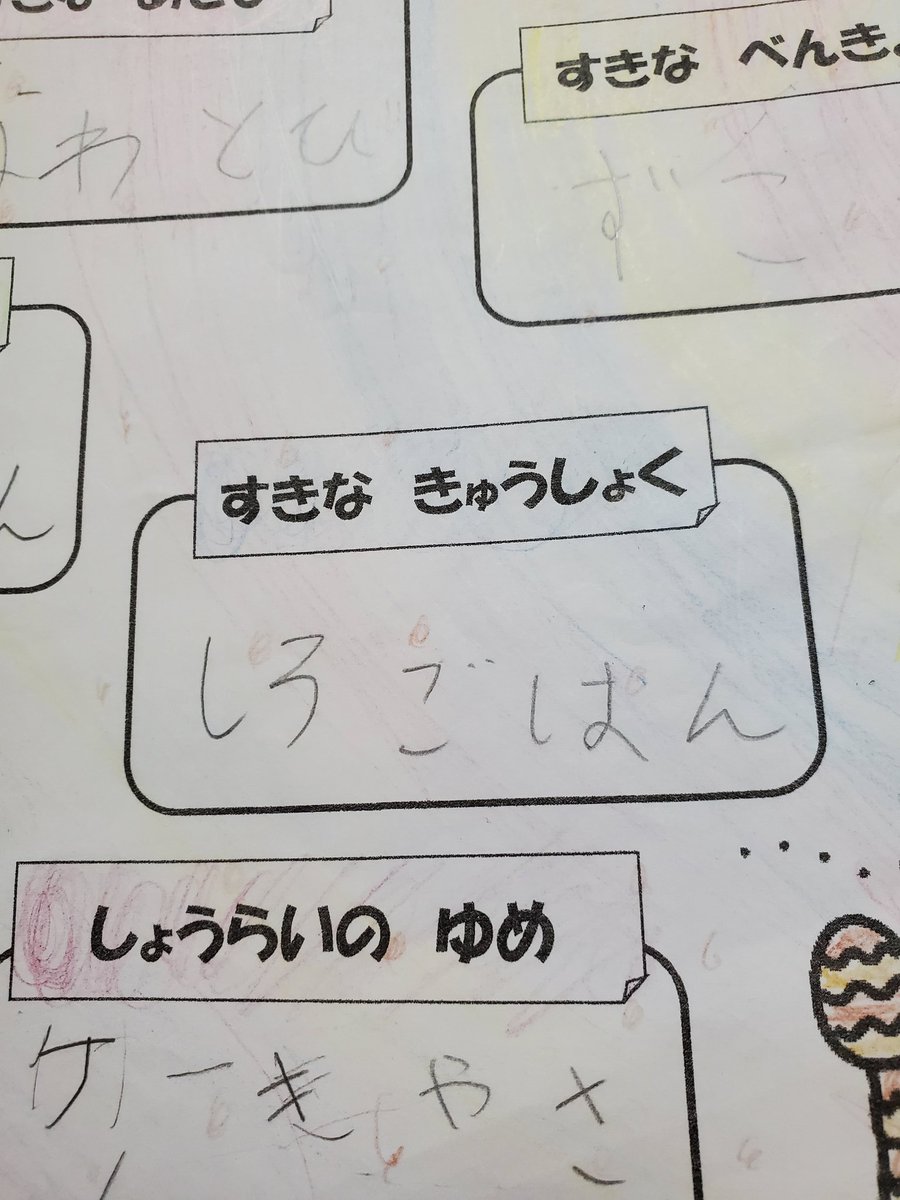 わとび
すきな べんき
ずこ
ん
すきな きゅうしょく
しろごはん
しょうらいの ゆめ
ケーきやさ